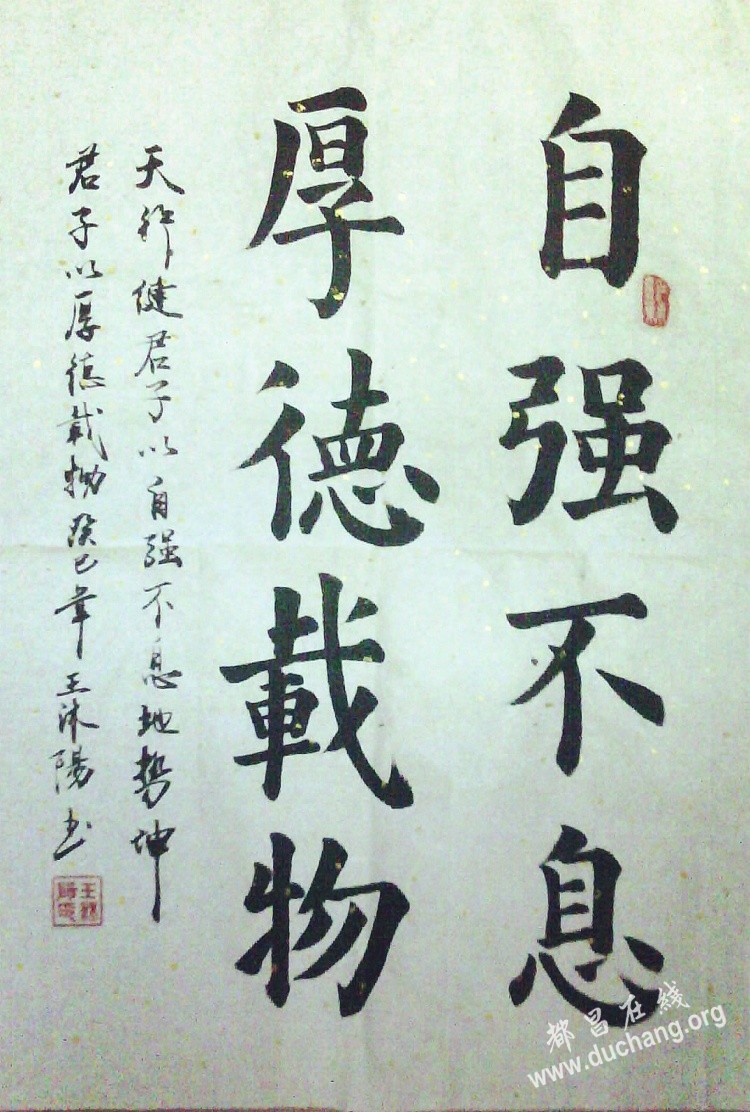 自强不息
厚德載物
天行健君子以自强不息地势坤
君子以厚德載物癸巳年王沐陽书
都昌在线
www.duchang.org